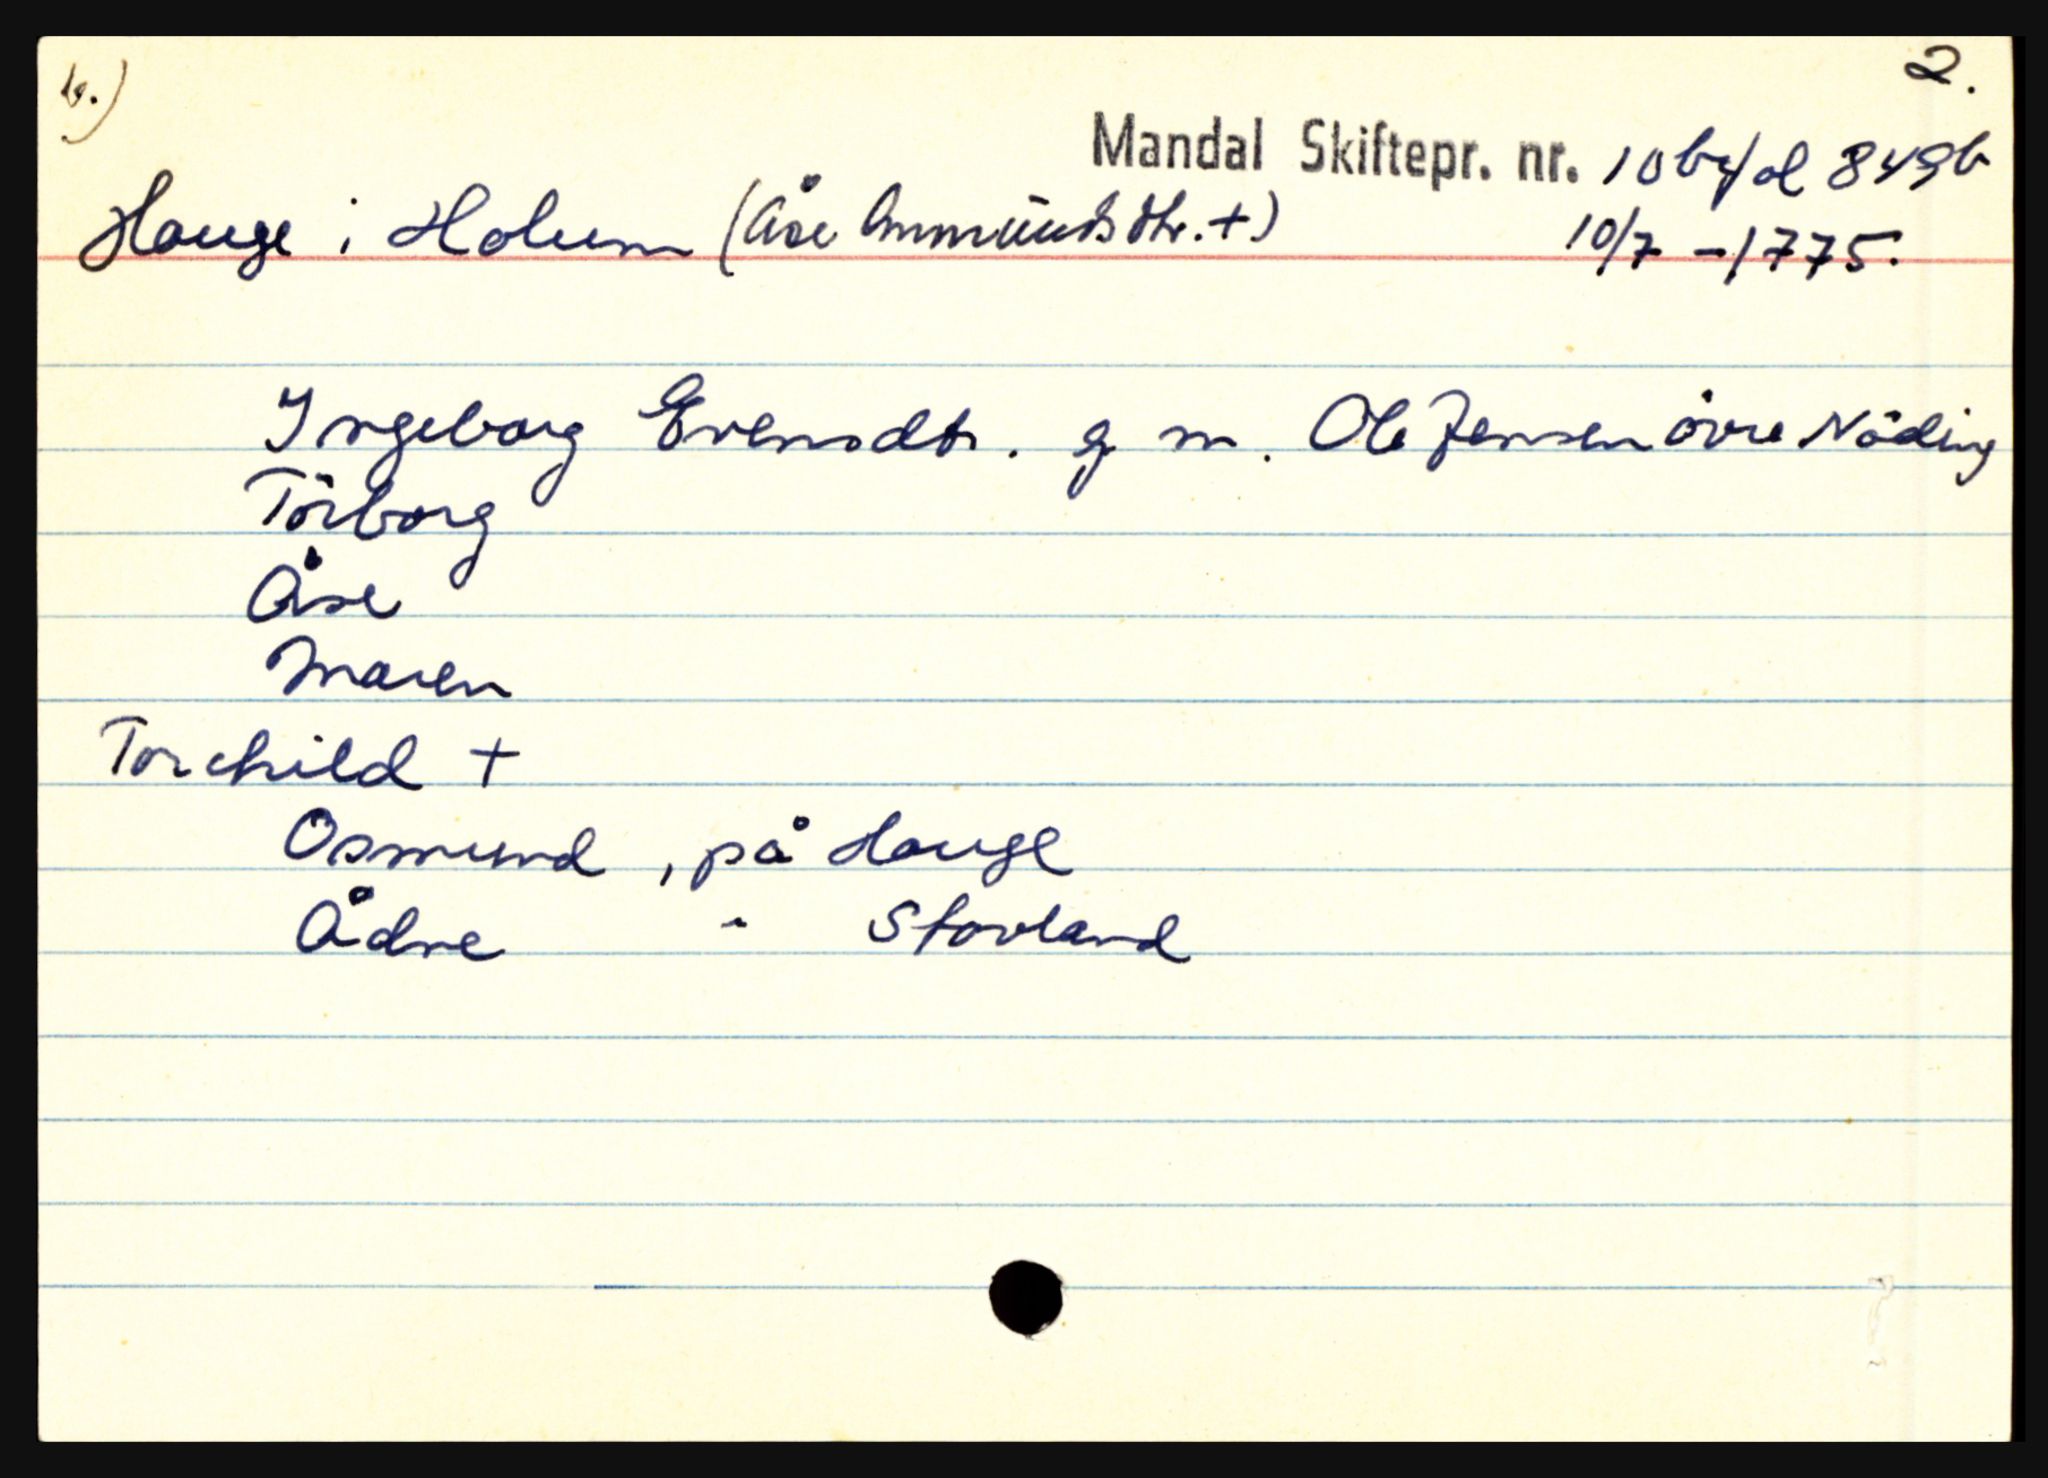 b.)
2.
Mandal Skiftepr. nr. 10 b fol 849b
Hauge i Holum (Åse Ommunds dtr. +) 10/7 - 1775.
Ingeborg Evensdtr. g m. Ole Jensen övre Nöding
Törborg
Åse
Maren
Torchild +
Osmund, på Hauge
Ådne " Stovland